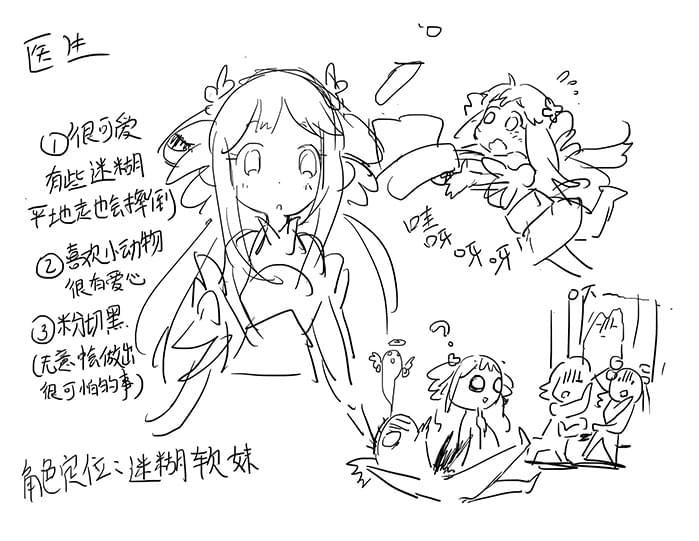 医生
①很可爱
有些迷糊
平地走也会摔到
②喜欢小动物
很有爱心
③粉切黑
(无意恰做出
很可怕的事)
角色定位:迷糊软妹
哇
呀
呀
呀
?